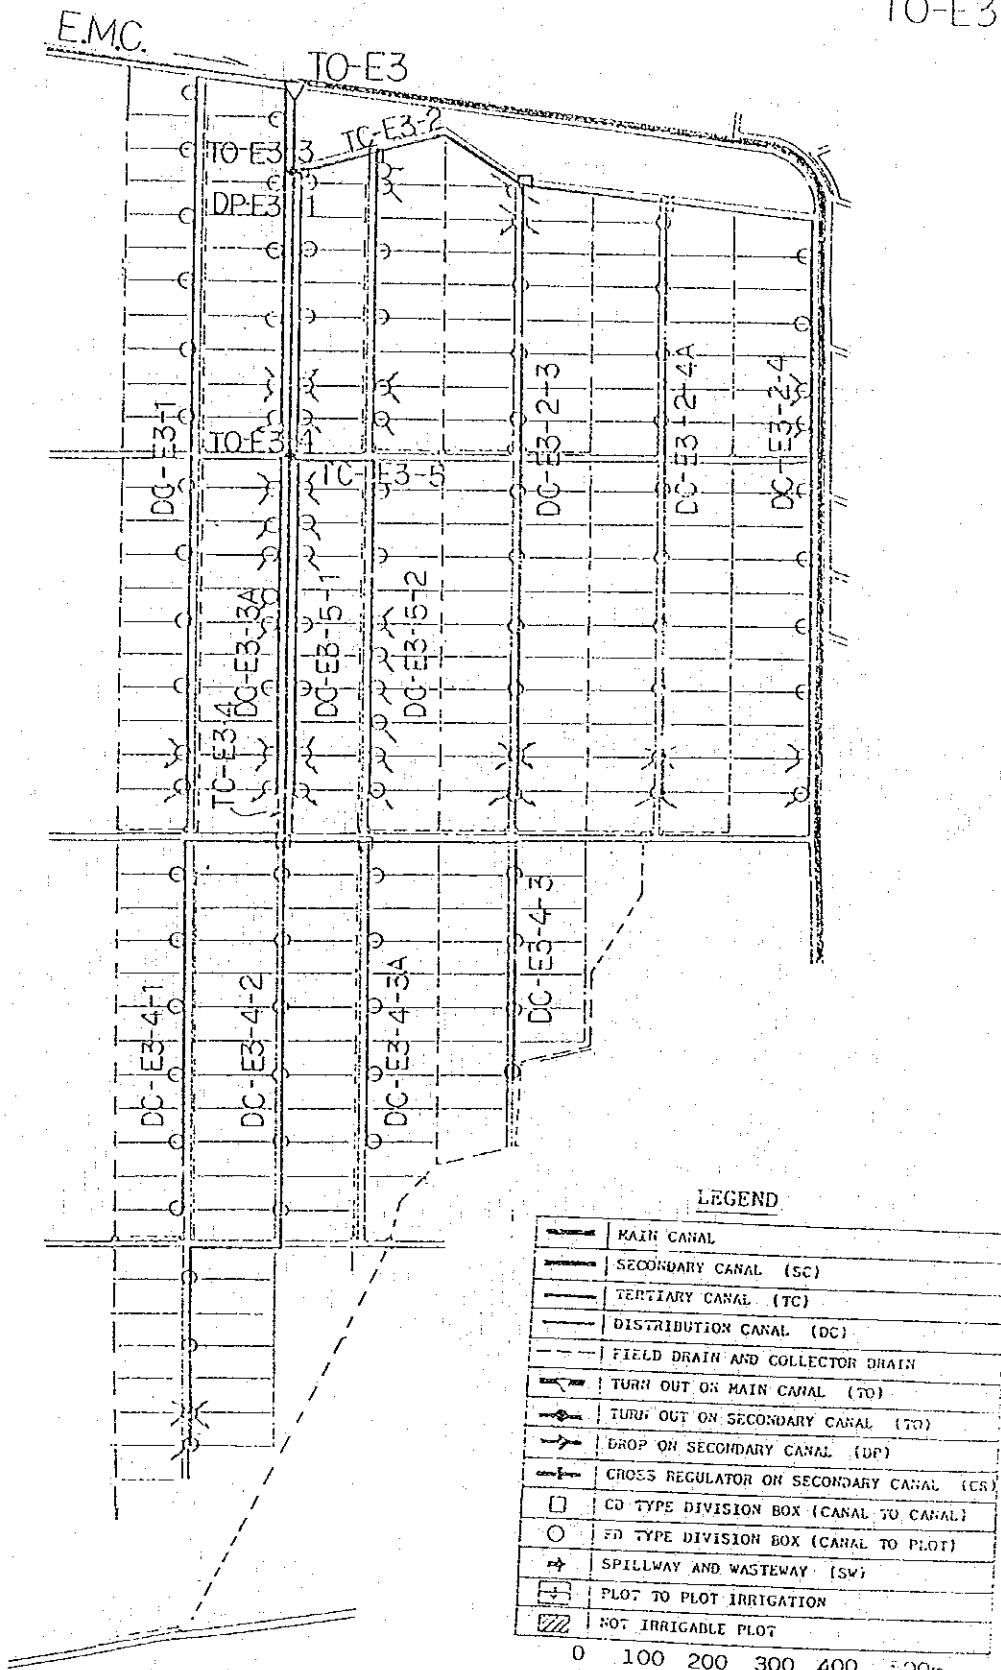 TO-E3
E.M.C.
TO-E3
TC-E3-2
TO-E3 3
DP-E3 1
DC-E3-1
TO-E3 1
TC-E3-5
DC-E3-2-3
DC-E3-2-4A
DC-E3-2-4
DC-E3-3A
DC-E3-5-1
DC-E3-5-2
TC-E3-4
DC-E3-4-1
DC-E3-4-2
DC-E3-4-3A
DC-E3-4-3
LEGEND
MAIN CANAL
SECONDARY CANAL (SC)
TERTIARY CANAL (TC)
DISTRIBUTION CANAL (DC)
FIELD DRAIN AND COLLECTOR DRAIN
TURN OUT ON MAIN CANAL (TO)
TURN OUT ON SECONDARY CANAL (TO)
DROP ON SECONDARY CANAL (DP)
CROSS REGULATOR ON SECONDARY CANAL (CR)
CD TYPE DIVISION BOX (CANAL TO CANAL)
FD TYPE DIVISION BOX (CANAL TO PLOT)
SPILLWAY AND WASTEWAY (SW)
PLOT TO PLOT IRRIGATION
NOT IRRIGABLE PLOT
0 100 200 300 400